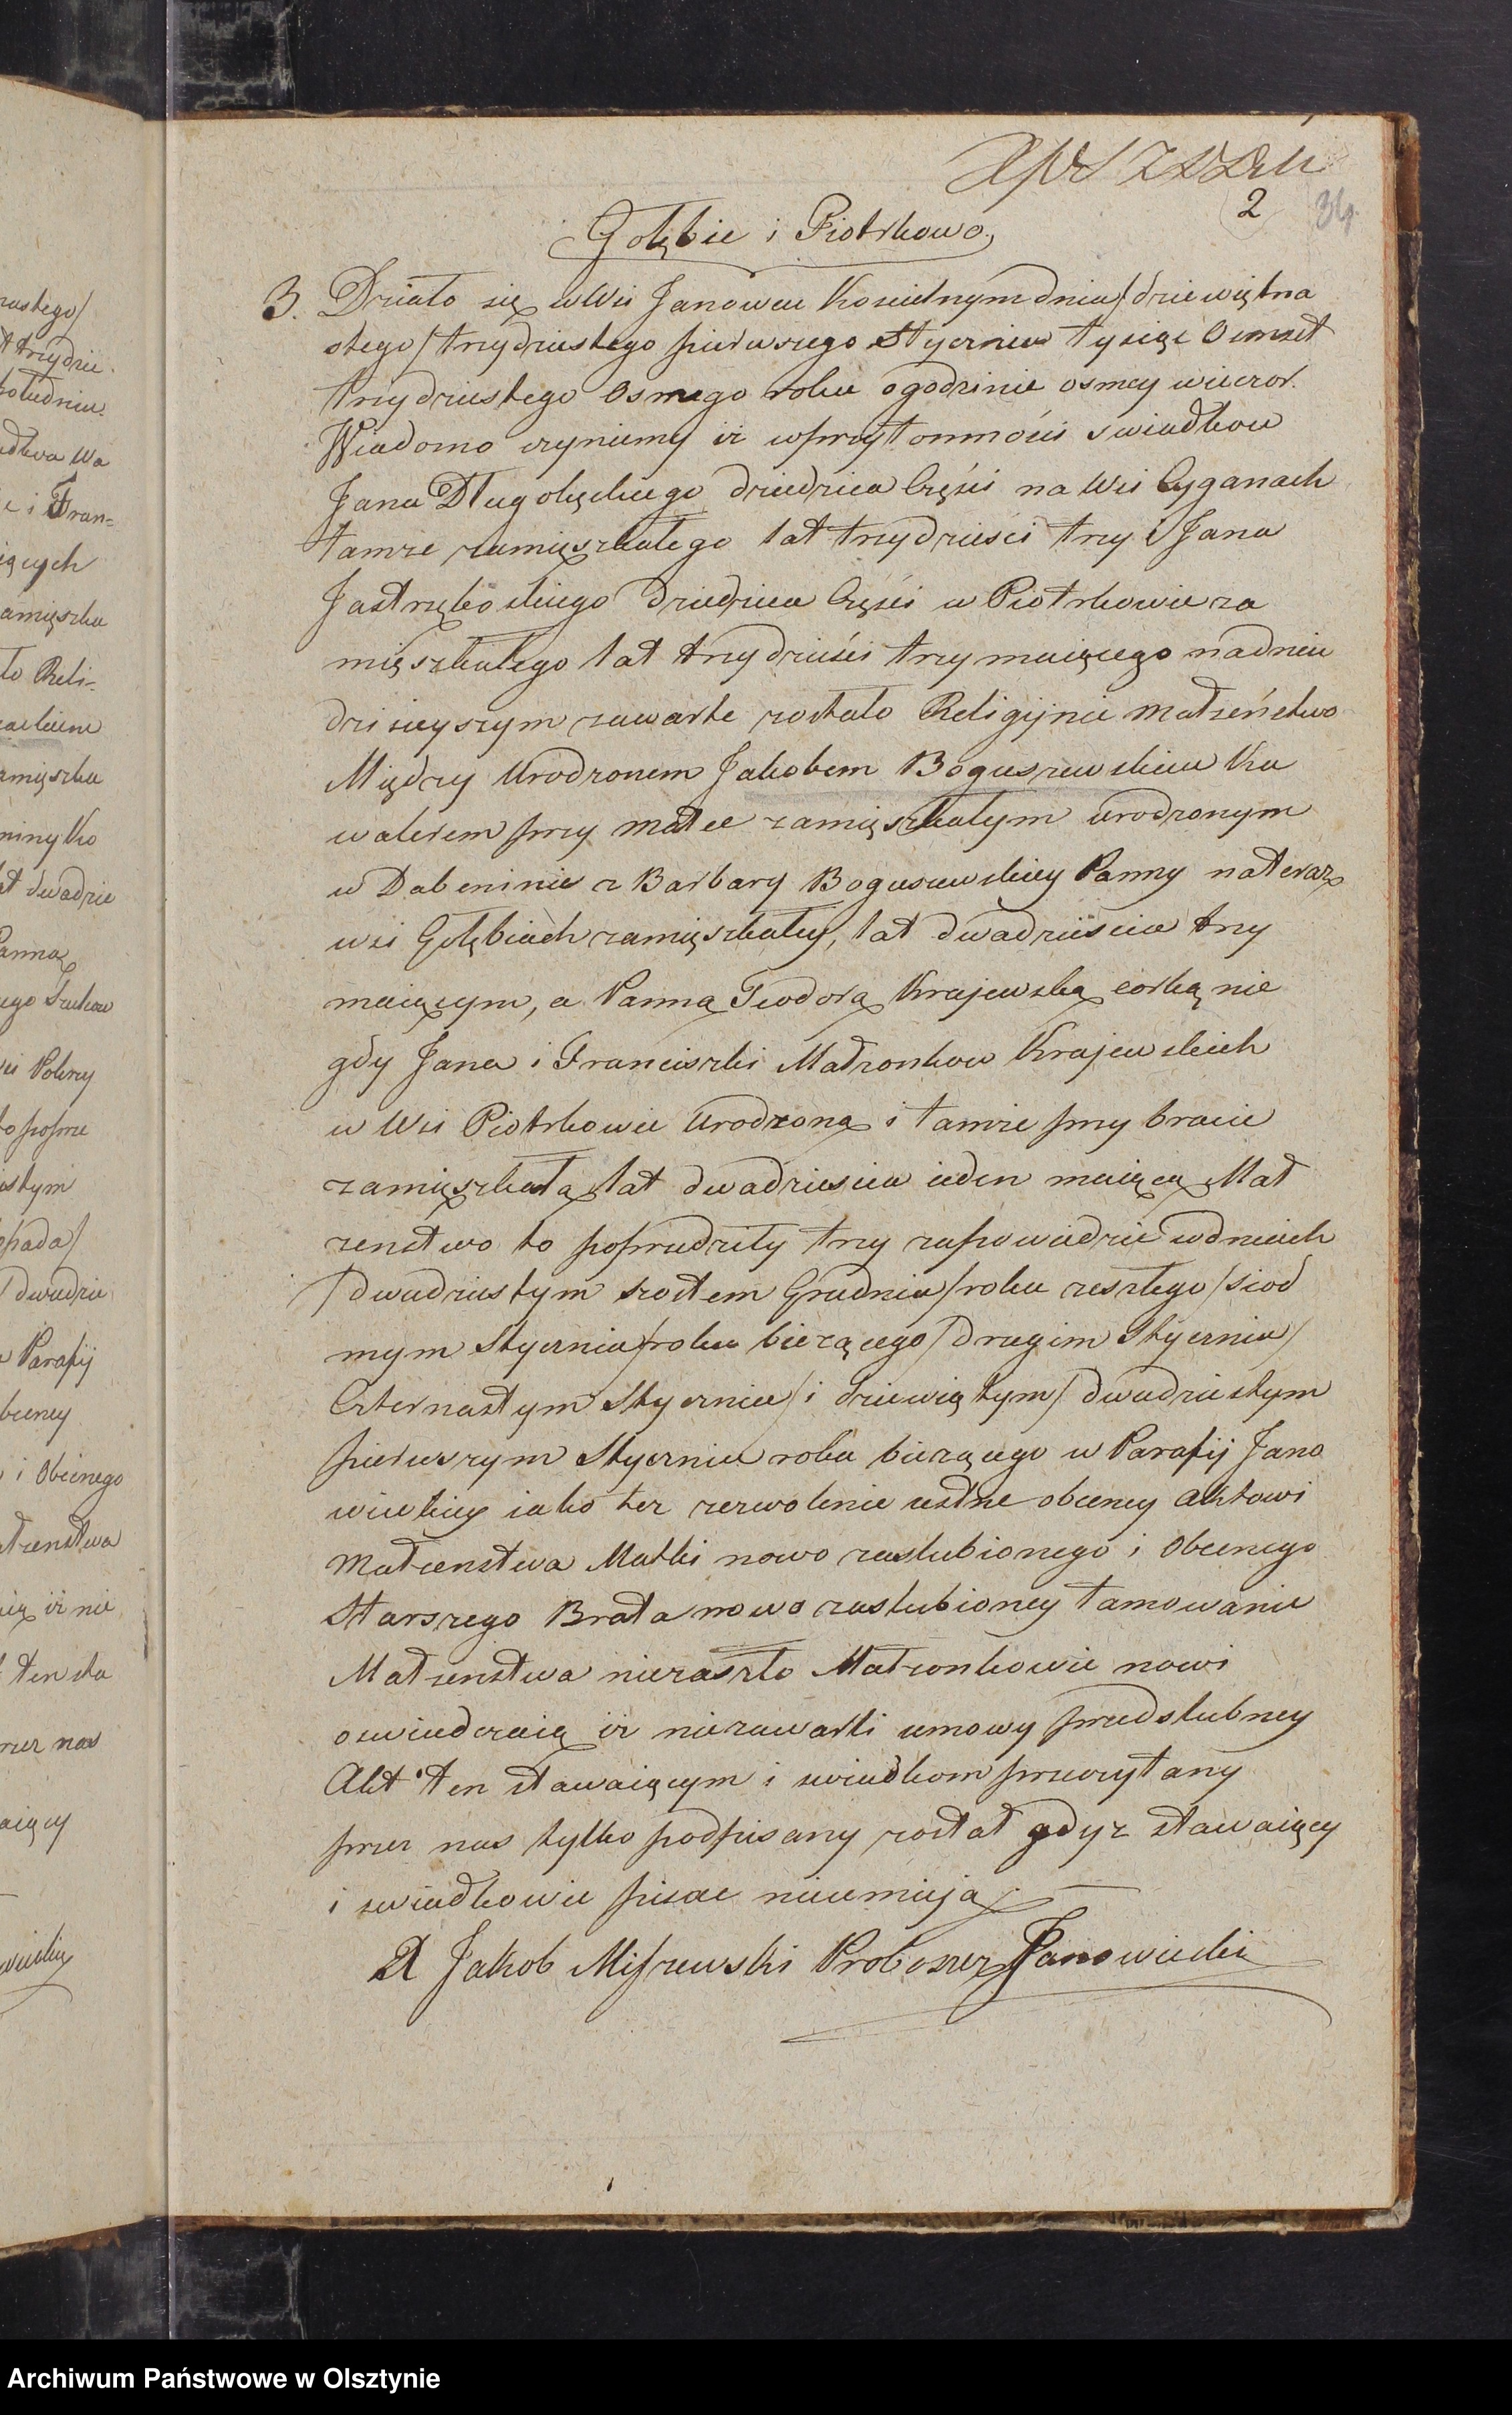 2
34.
Gołębie i Piotrkowo.
3. Działo się w Wsi Janowcu Koscielnym dnia / dziewiętna
stego / trzydziestego pierwszego Stycznia tysiąc Osmset
trzydziestego Osmego roku o godzinie osmey wieczor.
Wiadomo czyniemy iż w przytomnósci swiadkow
Jana Długołęckiego dziedzica Częsci na Wsi Cyganach
tamże zamięszkałego lat trzydziesci trzy i Jana
Jastrzębskiego Dziedzica Częsci w Piotrkowie za
mięszkałego lat trzydziesci trzy maiącego na dniu
dzisieyszym zawarte zostało Religijnie małżeństwo
Między Urodzonem Jakobem Boguszewskim Ka
walerem przy matce zamięszkałym urodzonym
w Dabeninie z Barbary Boguszewskiey Panny na teraz
w si Gołębiach zamięszkałey, lat dwadzieścia trzy
maiącym, a Panną Teodorą Krajewską corką nie
gdy Jana i Franciszki Małżonkow Krajewskich
w Wsi Piotrkowie Urodzoną i tamże przy bracie
zamięszkałą lat dwadziescia ieden maiącą Mał
zenstwo to poprzedziły trzy zapowiedzie w dniach
/ dwudziestym szostem Grudnia / roku zeszłego / siod
mym Stycznia / roku bieżącego / drugim Stycznia /
Czternastym Stycznia / i dziewiątym / dwudziestym
pierwszym Stycznia roku bieżącego w Parafij Jano
wieckiey iako tez zezwolenie ustne obecney Aktowi
Małzenstwa Matki nowo zaslubionego i Obecnego
Starszego Brata nowo zaslubioney tamowanie
Małzenstwa niezaszło Małzonkowie nowi
oswiadczaią iż niezawarli umowy przedslubney
Akt ten stawaiącym i swiadkom przeczytany
przez nas tylko podpisany został gdyz stawaiący
i swiadkowie pisac nieumieją.
X Jakob Miszewski Proboszcz Janowiecki
rastego /
trzydzie
południu.
dkow Wa
i Fran=
iących
amięszka
to Reli-
amięszka
miny Ko
at dwadzie
Panną
si Pokrzy
to poprze
stym
pada /
/ dwudzie
w Parafij
beeney
i Obecnego
ałzenstwa
ią iż nie
ten sta
rzez nas
aiący
wiecki
Archiwum Państwowe w Olsztynie